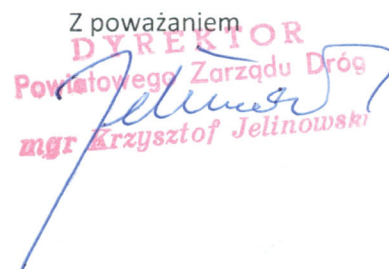 Z poważaniem
DYREKTOR
Powiatowego Zarządu Dróg
mgr Krzysztof Jelinowski